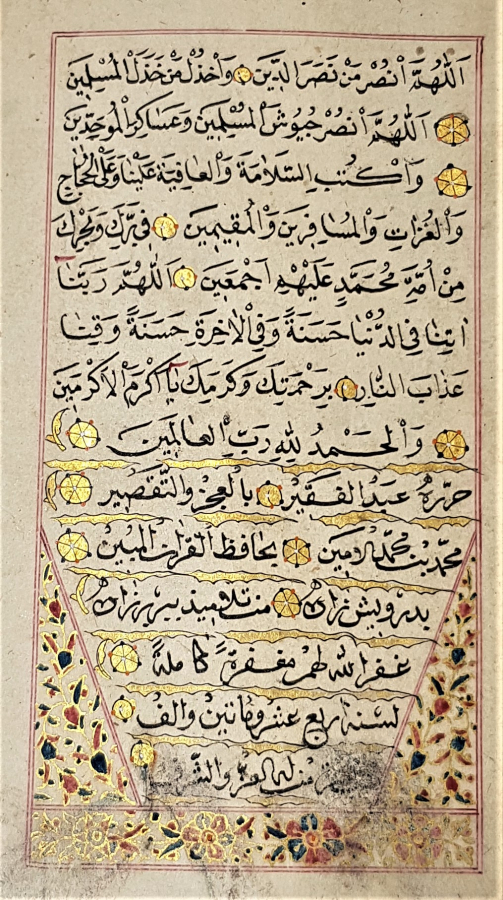 اَللّٰهُمَّ اَنْصُرْ مَنْ نَصَرَ الدِّينَ وَاَخْذُلْ مَنْ خَذَلَ الْمُسْلِمِينَ
اَللّٰهُمَّ اَنْصُرْ جُيُوشَ الْمُسْلِمِينَ وَعَسَاكِرَ الْمُوَحِّدِينَ
وَاَكْتُبِ السَّلَامَةَ وَالْعَافِيَةَ عَلَيْنَا وَعَلَى الْحُجَّاجِ
وَالْغُزَاتِ وَالْمُسَافِرِينَ وَالْمُقِيمِينَ فِي بَرِّكَ وَبَحْرِكَ
مِنْ اُمَّةِ مُحَمَّدٍ عَلَيْهِمْ اَجْمَعِينَ اَللّٰهُمَّ رَبَّنَا
اٰتِنَا فِي الدُّنْيَا حَسَنَةً وَفِي الْاٰخِرَةِ حَسَنَةً وَقِنَا
عَذَابَ النَّارِ بِرَحْمَتِكَ وَكَرَمِكَ يَا اَكْرَمَ الْاَكْرَمِينَ
وَالْحَمْدُ لِلّٰهِ رَبِّ الْعَالَمِينَ
حرّره عبد الفقير بالعجز والتّقصير
محمّد بن محمّد الامين بحافظ القران المبين
بدرويش زاده من تلاميذ زاده
غفر الله لهم مغفرةً كاملةً
لسنة اربع عشر ومائتين والف
من له العزّ والشّرف